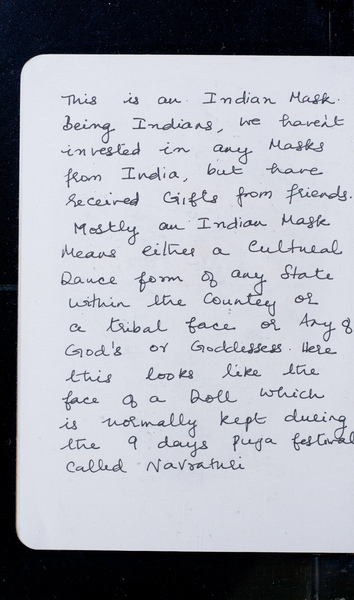 This is an Indian Mask.
Being Indians, we haven't
invested in any Masks
from India, but have
received Gifts from friends.
Mostly an Indian Mask
Means either a Cultural
Dance form of any State
within the Country or
a tribal face or Any of
God's or Goddesses. Here
this looks like the
face of a Doll which
is normally kept during
the 9 days Puja festival
called Navratri